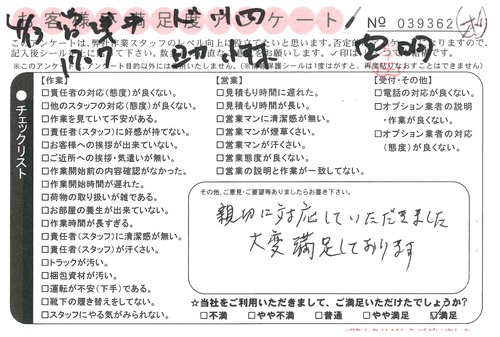 お客様満足度アンケート
No 039362
このアンケートは、弊社作業スタッフのレベル向上に役立てたいと思います。
【作業】
□責任者の対応(態度)が良くない。
□他のスタッフの対応(態度)が良くない。
□作業を見ていて不安がある。
□責任者(スタッフ)に好感が持てない。
□お客様への挨拶が出来ていない。
□ご近所への挨拶・気遣いが無い。
□作業開始前の内容確認がなかった。
□作業開始時間が遅れた。
□荷物の取り扱いが雑である。
□お部屋の養生が出来ていない。
□作業時間が長すぎる。
□責任者(スタッフ)に清潔感が無い。
□責任者(スタッフ)が汗くさい。
□トラックが汚い。
□梱包資材が汚い。
□運転が不安(下手)である。
□靴下の履き替えをしてない。
□スタッフにやる気がみられない。
【営業】
□見積もり時間に遅れた。
□見積もり時間が長い。
□営業マンに清潔感が無い。
□営業マンが煙草くさい。
□営業マンが汗くさい。
□営業態度が良くない。
□営業の説明と作業が一致してない。
【受付・その他】
□電話の対応が良くない。
□オプション業者の説明
・作業が良くない。
□オプション業者の対応
(態度)が良くない。
チェックリスト
その他、ご意見・ご要望等ありましたらお書き下さい。
親切に対応していただきました
大変満足しております
☆当社をご利用いただきまして、ご満足いただけたでしょうか?
□不満 □やや不満 □普通 □やや満足 ☑満足